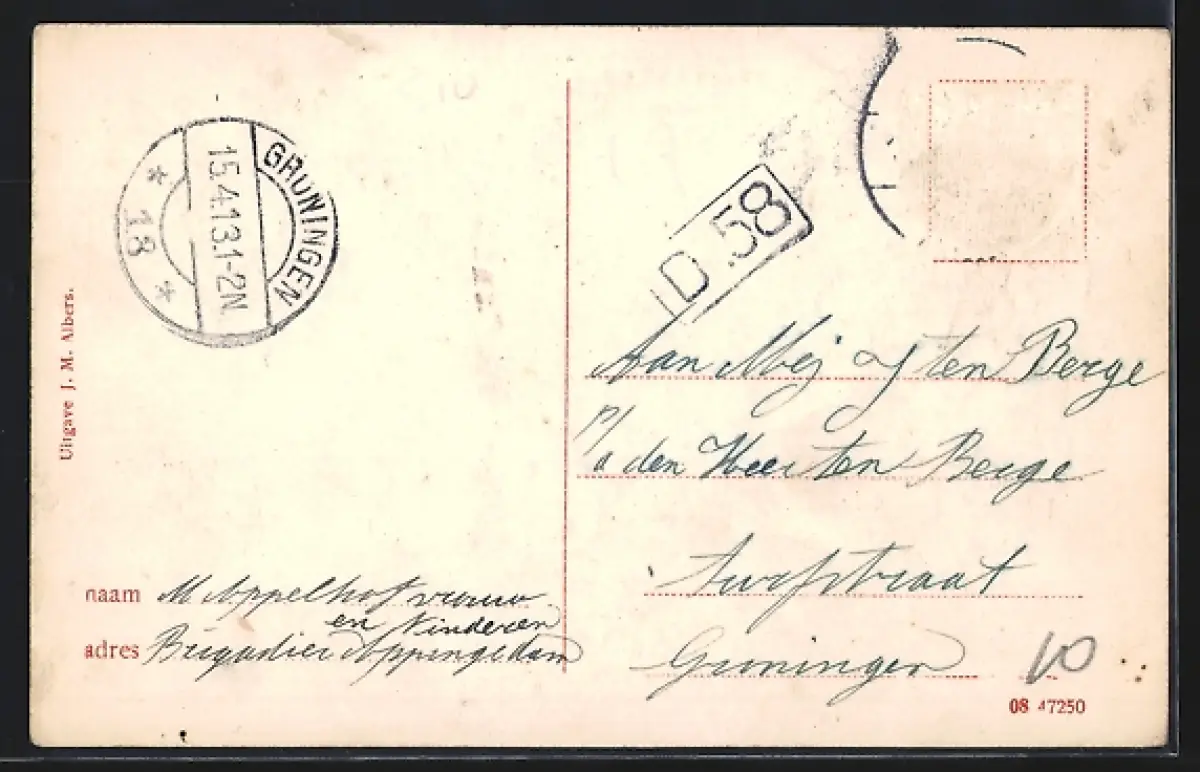 GRONINGEN
15.4.13.1-2N
* 18 *
D.58
Uitgave J. M. Albers.
Aan Mej ten Berge
p/a den Heer ten Berge
Turfstraat
Groningen
naam M Appelhof vrouw
en Kinderen
adres Brigadier Appingedam
10
08 47250